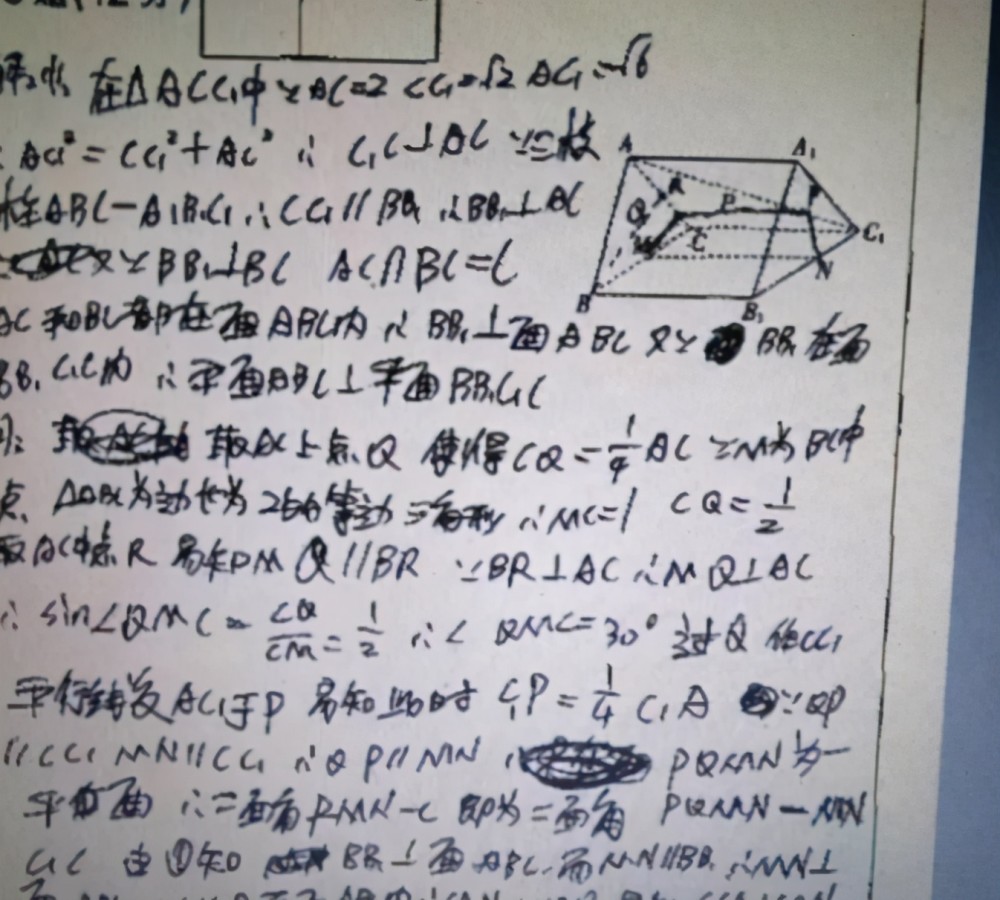 在△ACC₁中 ∵AC=2 CC₁=√2 AC₁=√6
AC₁²=CC₁²+AC² ∴ C₁C⊥AC ∵三棱
柱ABC-A₁B₁C₁ ∴CC₁∥BB₁ ∴BB₁⊥AC
又∵BB₁⊥BC AC∩BC=C
AC和BC都在面ABC内 ∴ BB₁⊥面ABC 又∵ BB₁在面
BB₁C₁C内 ∴平面ABC⊥平面BB₁C₁C
取AC上点Q 使得CQ=1/4AC ∵M为BC中
点 △ABC为边长为2的等边三角形 ∴MC=1 CQ=1/2
取AC中点R 易知 MQ∥BR ∵BR⊥AC ∴MQ⊥AC
∴ sin∠QMC=CQ/CM=1/2 ∴∠QMC=30° 过Q作CC₁
平行线交AC₁于P 易知此时 C₁P=1/4C₁A ∵QP
∥CC₁ MN∥CC₁ ∴QP∥MN PQMN为一
平面 ∴二面角PMN-C 即为二面角 PQMN-MN
C₁C 由①知 BB₁⊥面ABC 而MN∥BB₁ ∴MN⊥
A
A₁
R
Q
P
C
C₁
N
B
B₁